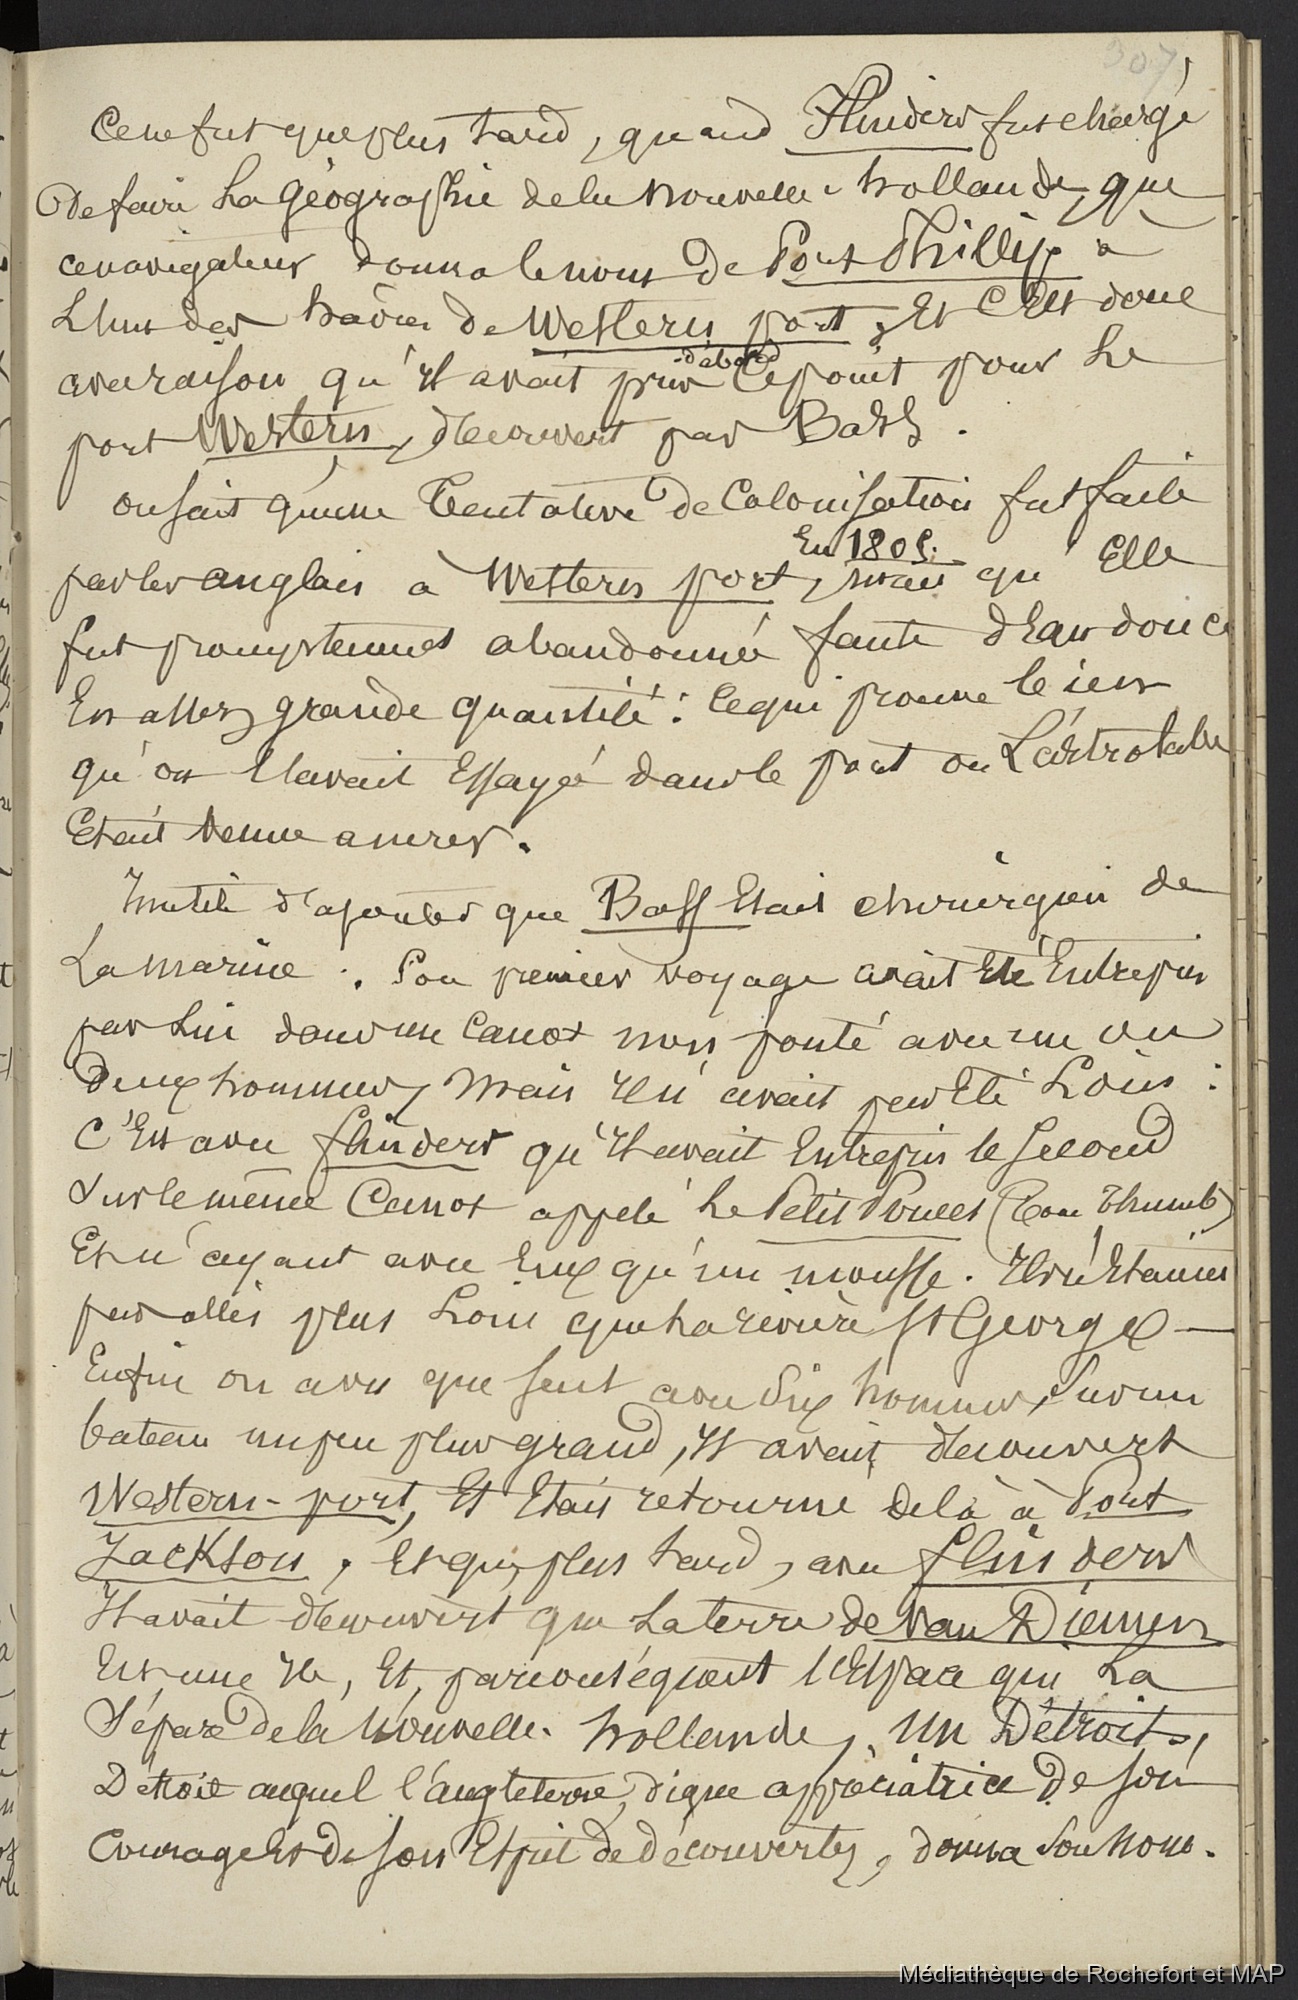 307
Ce ne fut que plus tard, quand Flinders fut chargé
de faire la géographie de la nouvelle-hollande, que
ce navigateur donna le nom de Port Phillip à
l'un des hâvres de Western port, et c'est donc
avec raison qu'il avait pris d'abord ce point pour le
port Western, découvert par Bass.
on sait qu'une tentative de colonisation fut faite
par les anglais à Western port, en 1805. mais qu'elle
fut promptement abandonnée faute d'eau douce
en assez grande quantité : ce qui prouve bien
qu'on l'avait essayé dans le port où L'astrolabe
était venue ancrer.
Inutile d'ajouter que Bass était chirurgien de
la marine. Son premier voyage avait été entrepris
par lui dans un canot non ponté avec un ou
deux hommes, mais il n'avait pas été loin :
c'est avec flinders qu'il avait entrepris le second
sur le même canot appelé le Petit Poucet (Tom Thumb)
et n'ayant avec eux qu'un mousse. Ils n'étaient
pas allés plus loin que la rivière St George —
Enfin on a vu que seul avec six hommes, sur un
bateau un peu plus grand, il avait découvert
Western-port, et était retourné de là à Port
Jackson, et que, plus tard, avec flinders
il avait découvert que la terre de Van Diémen
est une île, et, par conséquent l'espace qui la
sépare de la nouvelle-hollande, un Détroit,
Détroit auquel l'angleterre, digne appréciatrice de son
courage et de son esprit de découvertes, donna son nom.
Médiathèque de Rochefort et MAP